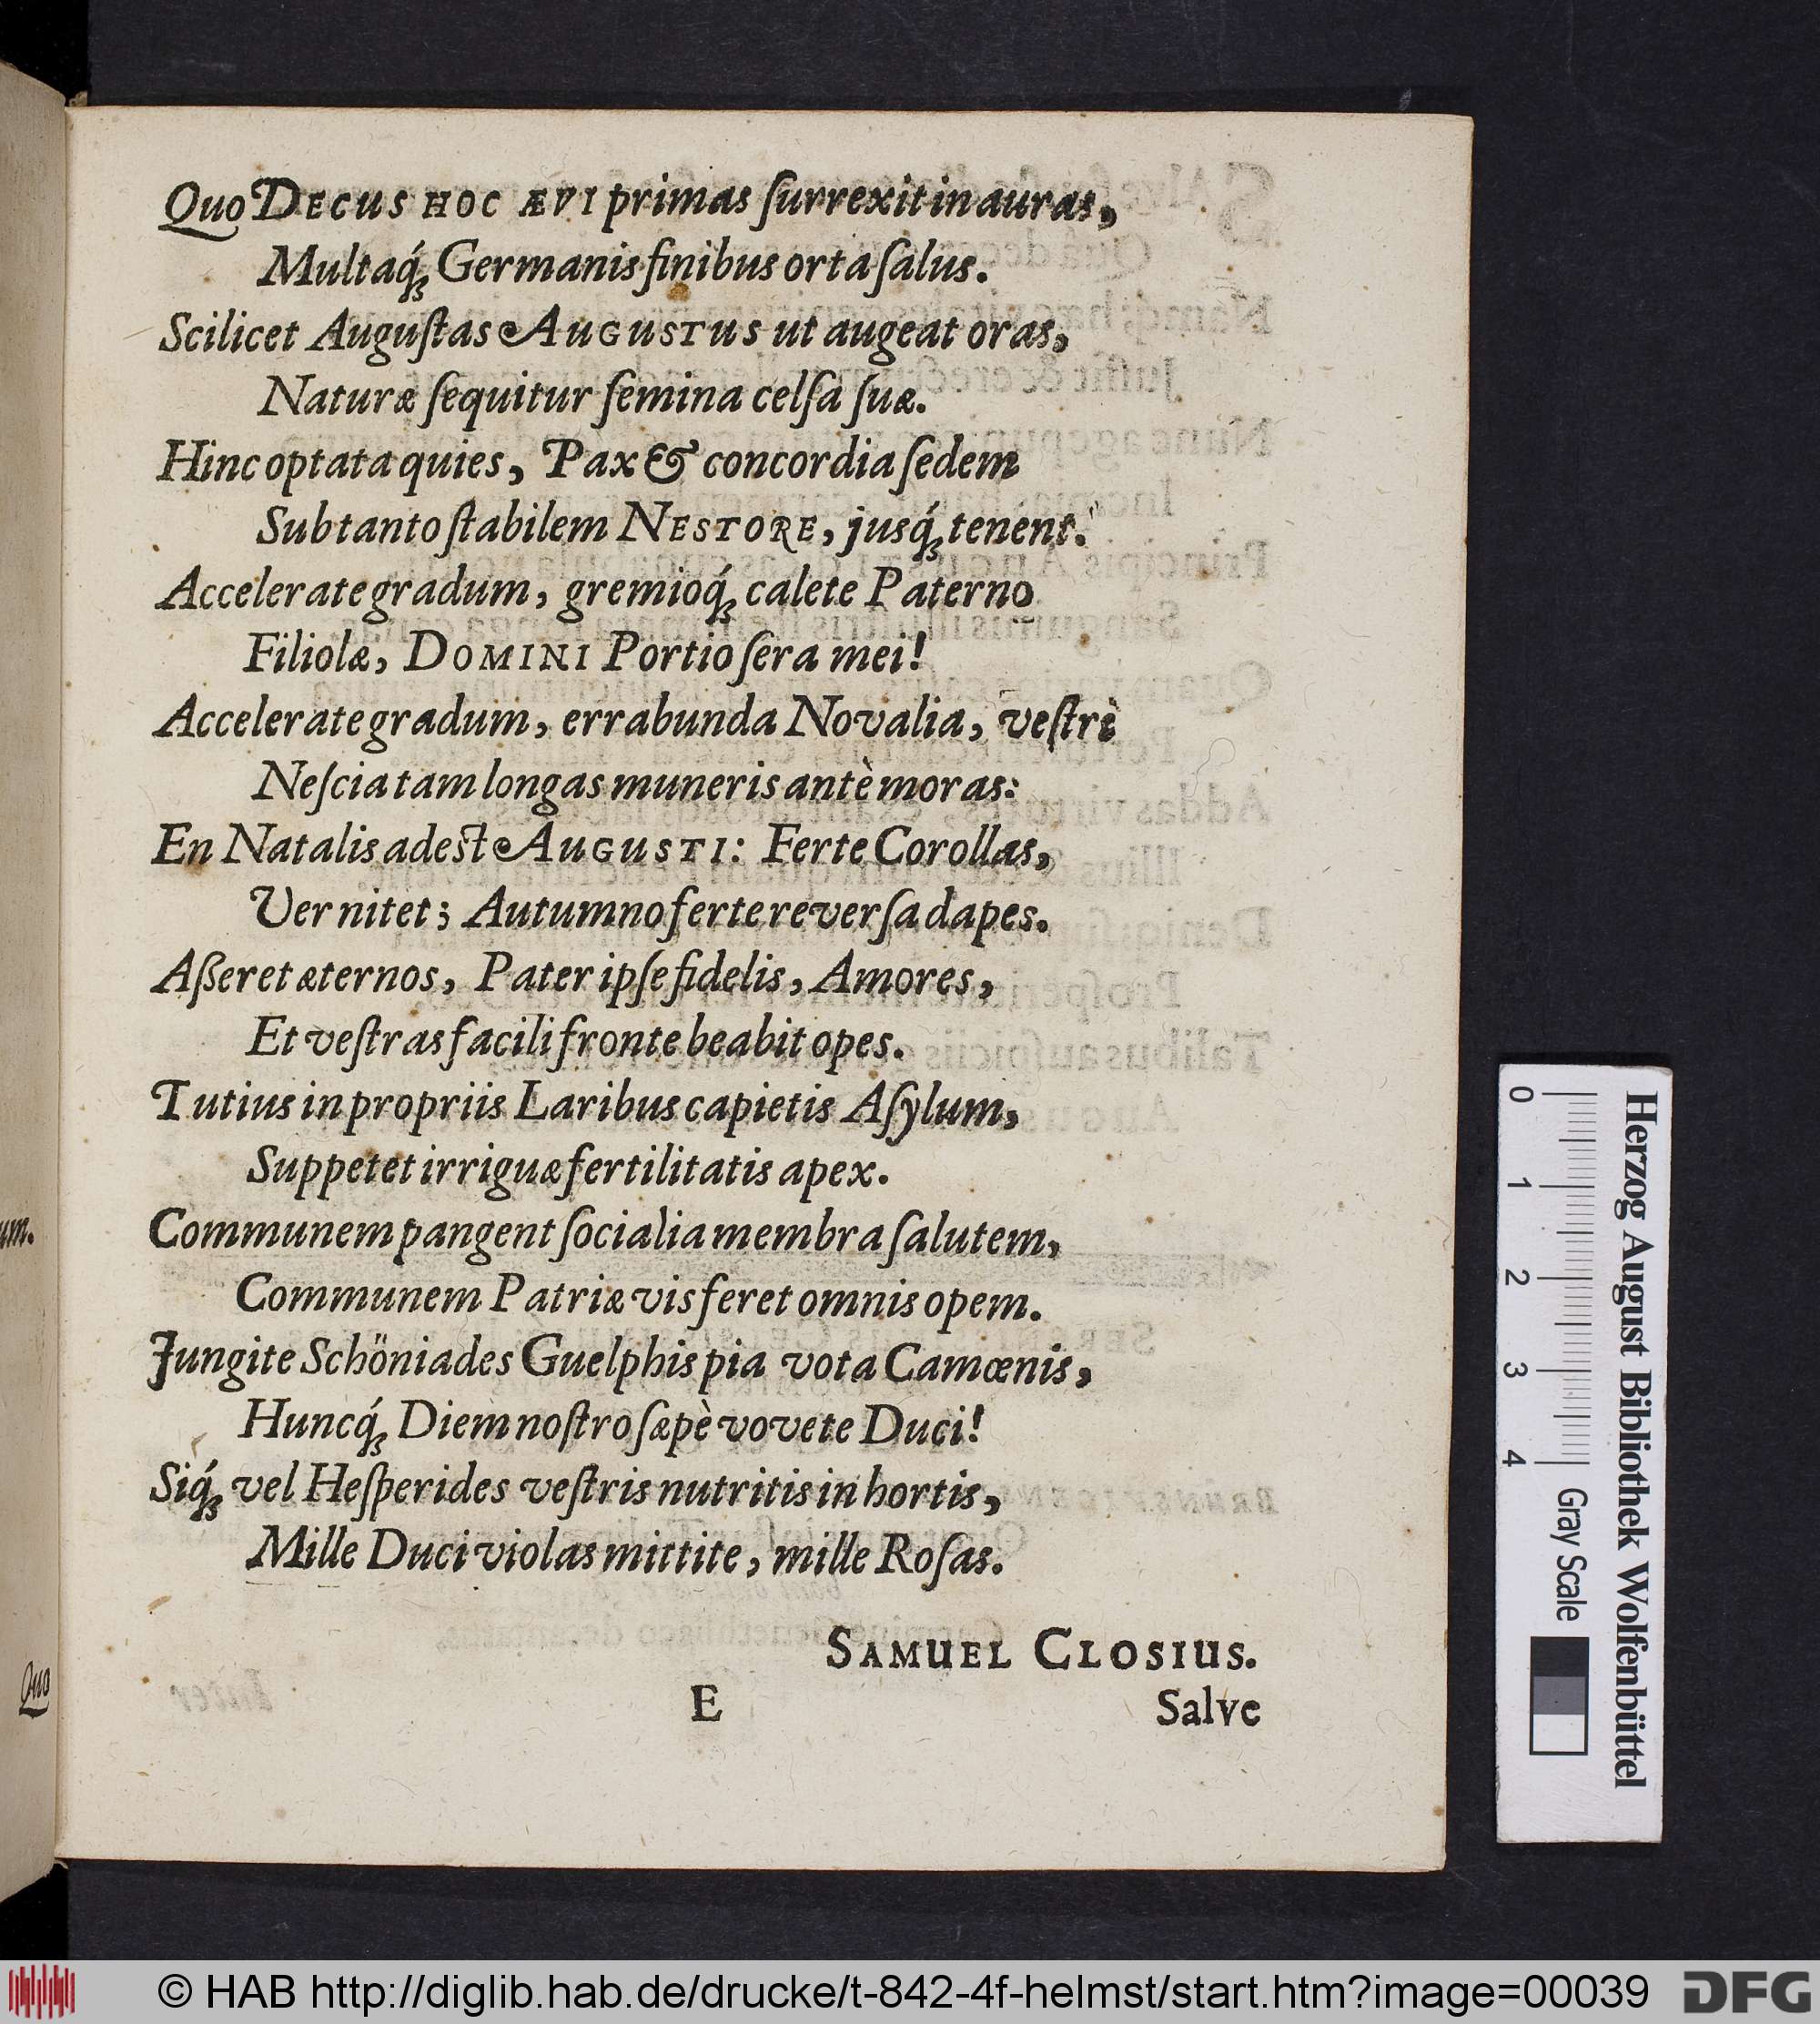 Quo DECUS HOC ÆVI primas ſurrexit in auras,
Multaq́ꝫ Germanis finibus orta ſalus.
Scilicet Auguſtas AUGUSTUS ut augeat oras,
Naturæ ſequitur ſemina celſa ſuæ.
Hinc optata quies, Pax & concordia ſedem
Sub tanto ſtabilem NESTORE, jusq́ꝫ tenent.
Accelerate gradum, gremioq́ꝫ calete Paterno
Filiolæ, DOMINI Portio ſera mei!
Accelerate gradum, errabunda Novalia, veſtrè
Neſcia tam longas muneris antè moras:
En Natalis adest AUGUSTI: Ferte Corollas,
Ver nitet; Autumno ferte reverſa dapes.
Aßeret æternos, Pater ipſe fidelis, Amores,
Et veſtras facili fronte beabit opes.
Tutius in propriis Laribus capietis Aſylum,
Suppetet irriguæ fertilitatis apex.
Communem pangent ſocialia membra ſalutem,
Communem Patriæ vis feret omnis opem.
Jungite Schöniades Guelphis pia vota Camœnis,
Huncq́ꝫ Diem noſtro ſæpè vovete Duci!
Siq́ꝫ vel Heſperides veſtris nutritis in hortis,
Mille Duci violas mittite, mille Roſas.
SAMUEL CLOSIUS.
E
Salve
um.
Quo
Herzog August Bibliothek Wolfenbüttel
0 1 2 3 4
Gray Scale
© HAB http://diglib.hab.de/drucke/t-842-4f-helmst/start.htm?image=00039
DFG